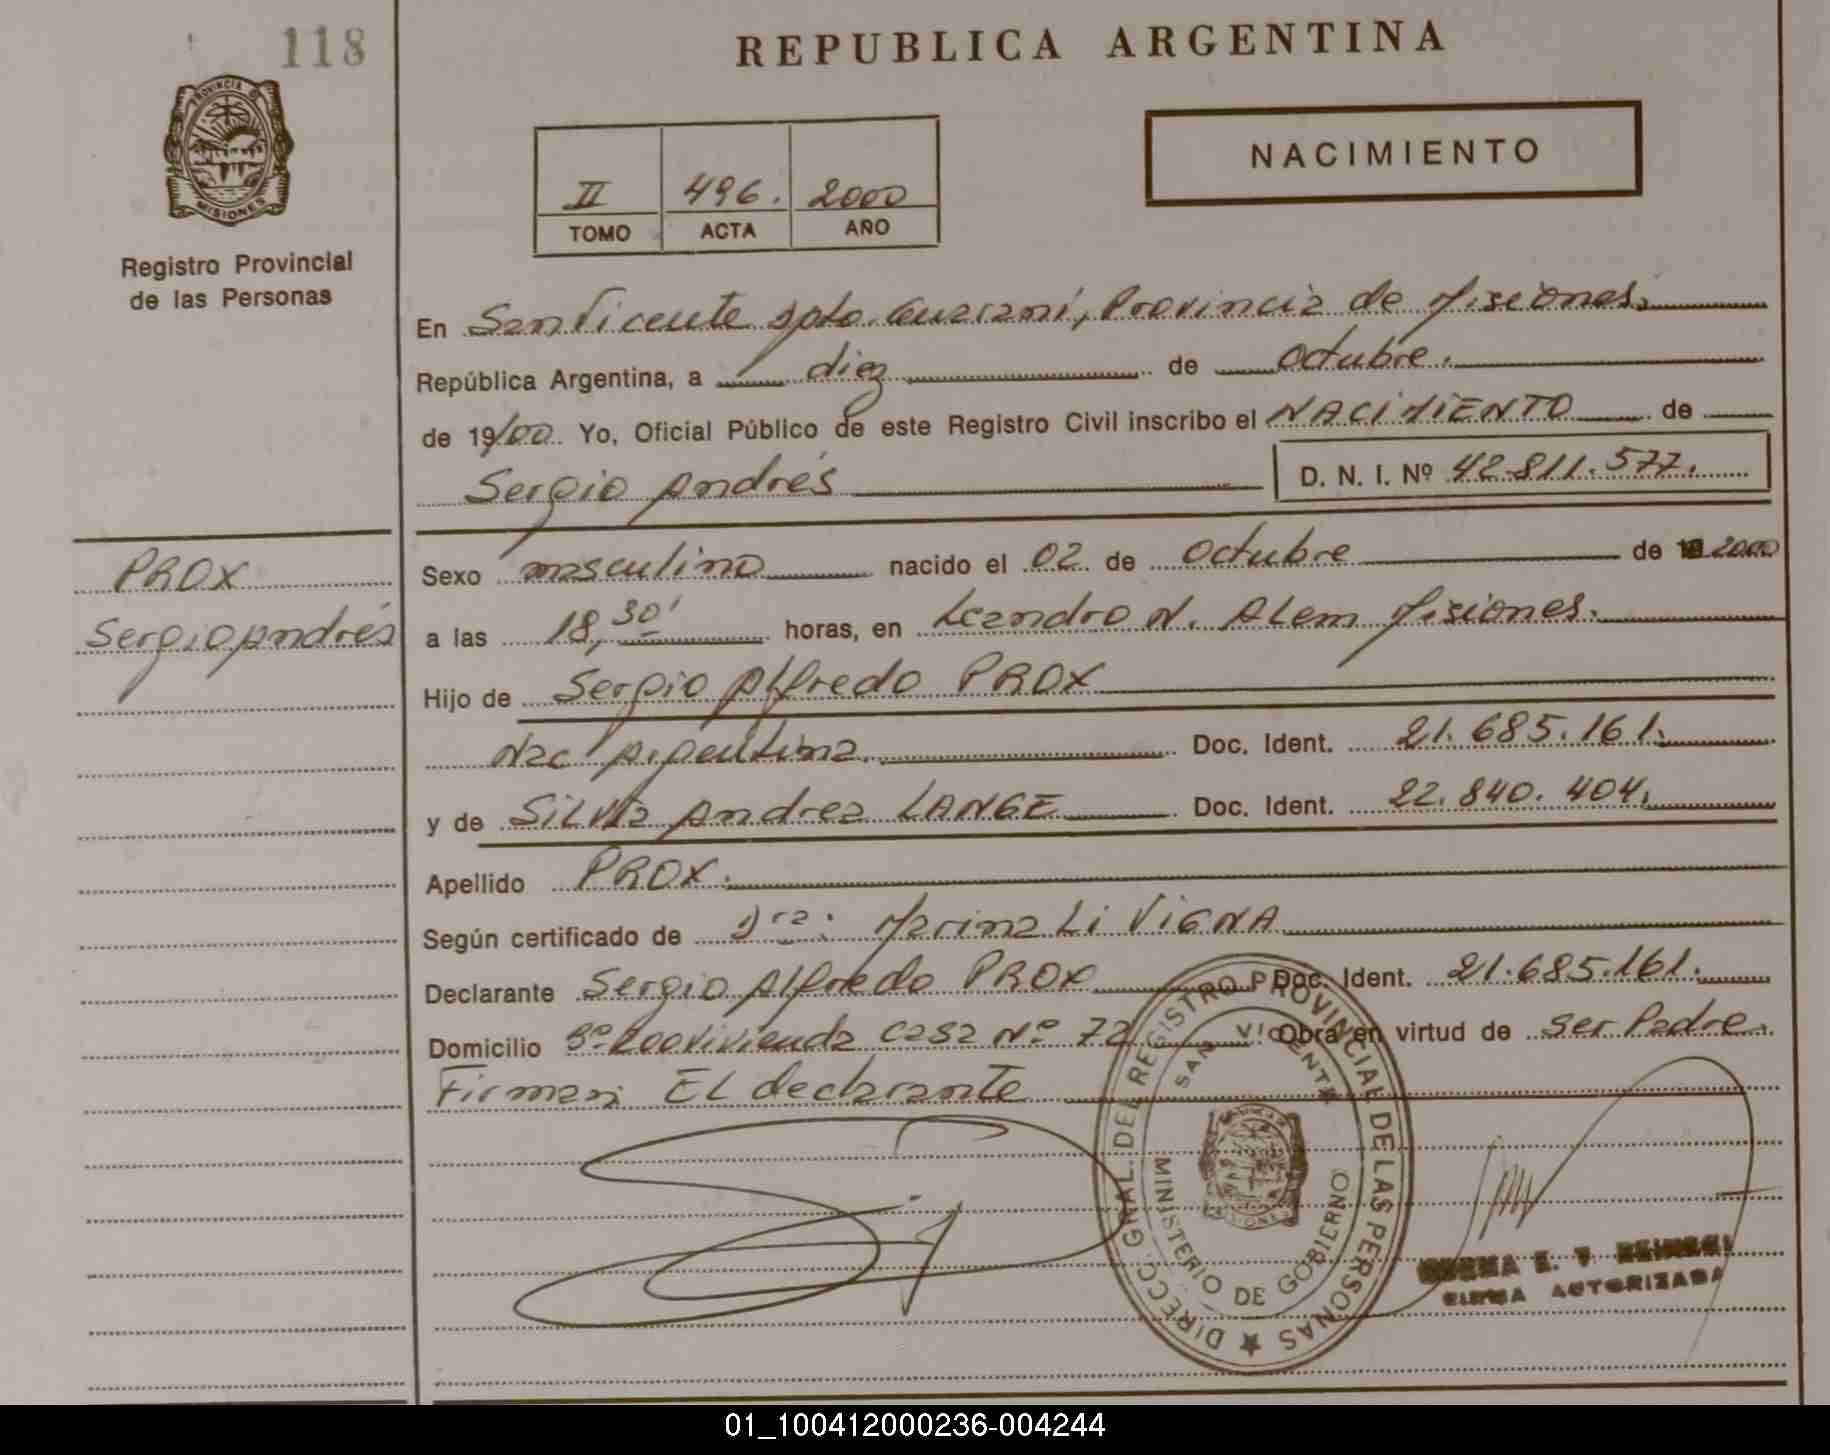 118
REPUBLICA ARGENTINA
PROVINCIA D
MISIONES
Registro Provincial
de las Personas
NACIMIENTO
II 496. 2000
TOMO ACTA AÑO
En San Vicente Dpto. Guaraní, Provincia de Misiones.
República Argentina, a diez de octubre.
de 19/00. Yo, Oficial Público de este Registro Civil inscribo el NACIMIENTO de
Sergio Andrés D. N. I. Nº 42.811.577.
PROX
Sergio Andrés
Sexo masculino nacido el 02 de octubre de 2000
a las 18,30' horas, en Leandro N. ALem Misiones.
Hijo de Sergio Alfredo PROX
Nac Argentina. Doc. Ident. 21.685.161.
y de SiLVia Andrea LANGE Doc. Ident. 22.840.404.
Apellido PROX.
Según certificado de Dra: Marina Li ViGNA
Declarante Sergio Alfredo PROX Doc. Ident. 21.685.161.
Domicilio vivienda casa Nº 72 Obra en virtud de ser Padre.
Firman: EL declarante
DIRECC. GRAL. DEL REGISTRO PROVINCIAL DE LAS PERSONAS
SAN VICENTE
MINISTERIO DE GOBIERNO
E.
FIRMA AUTORIZADA
01_100412000236-004244